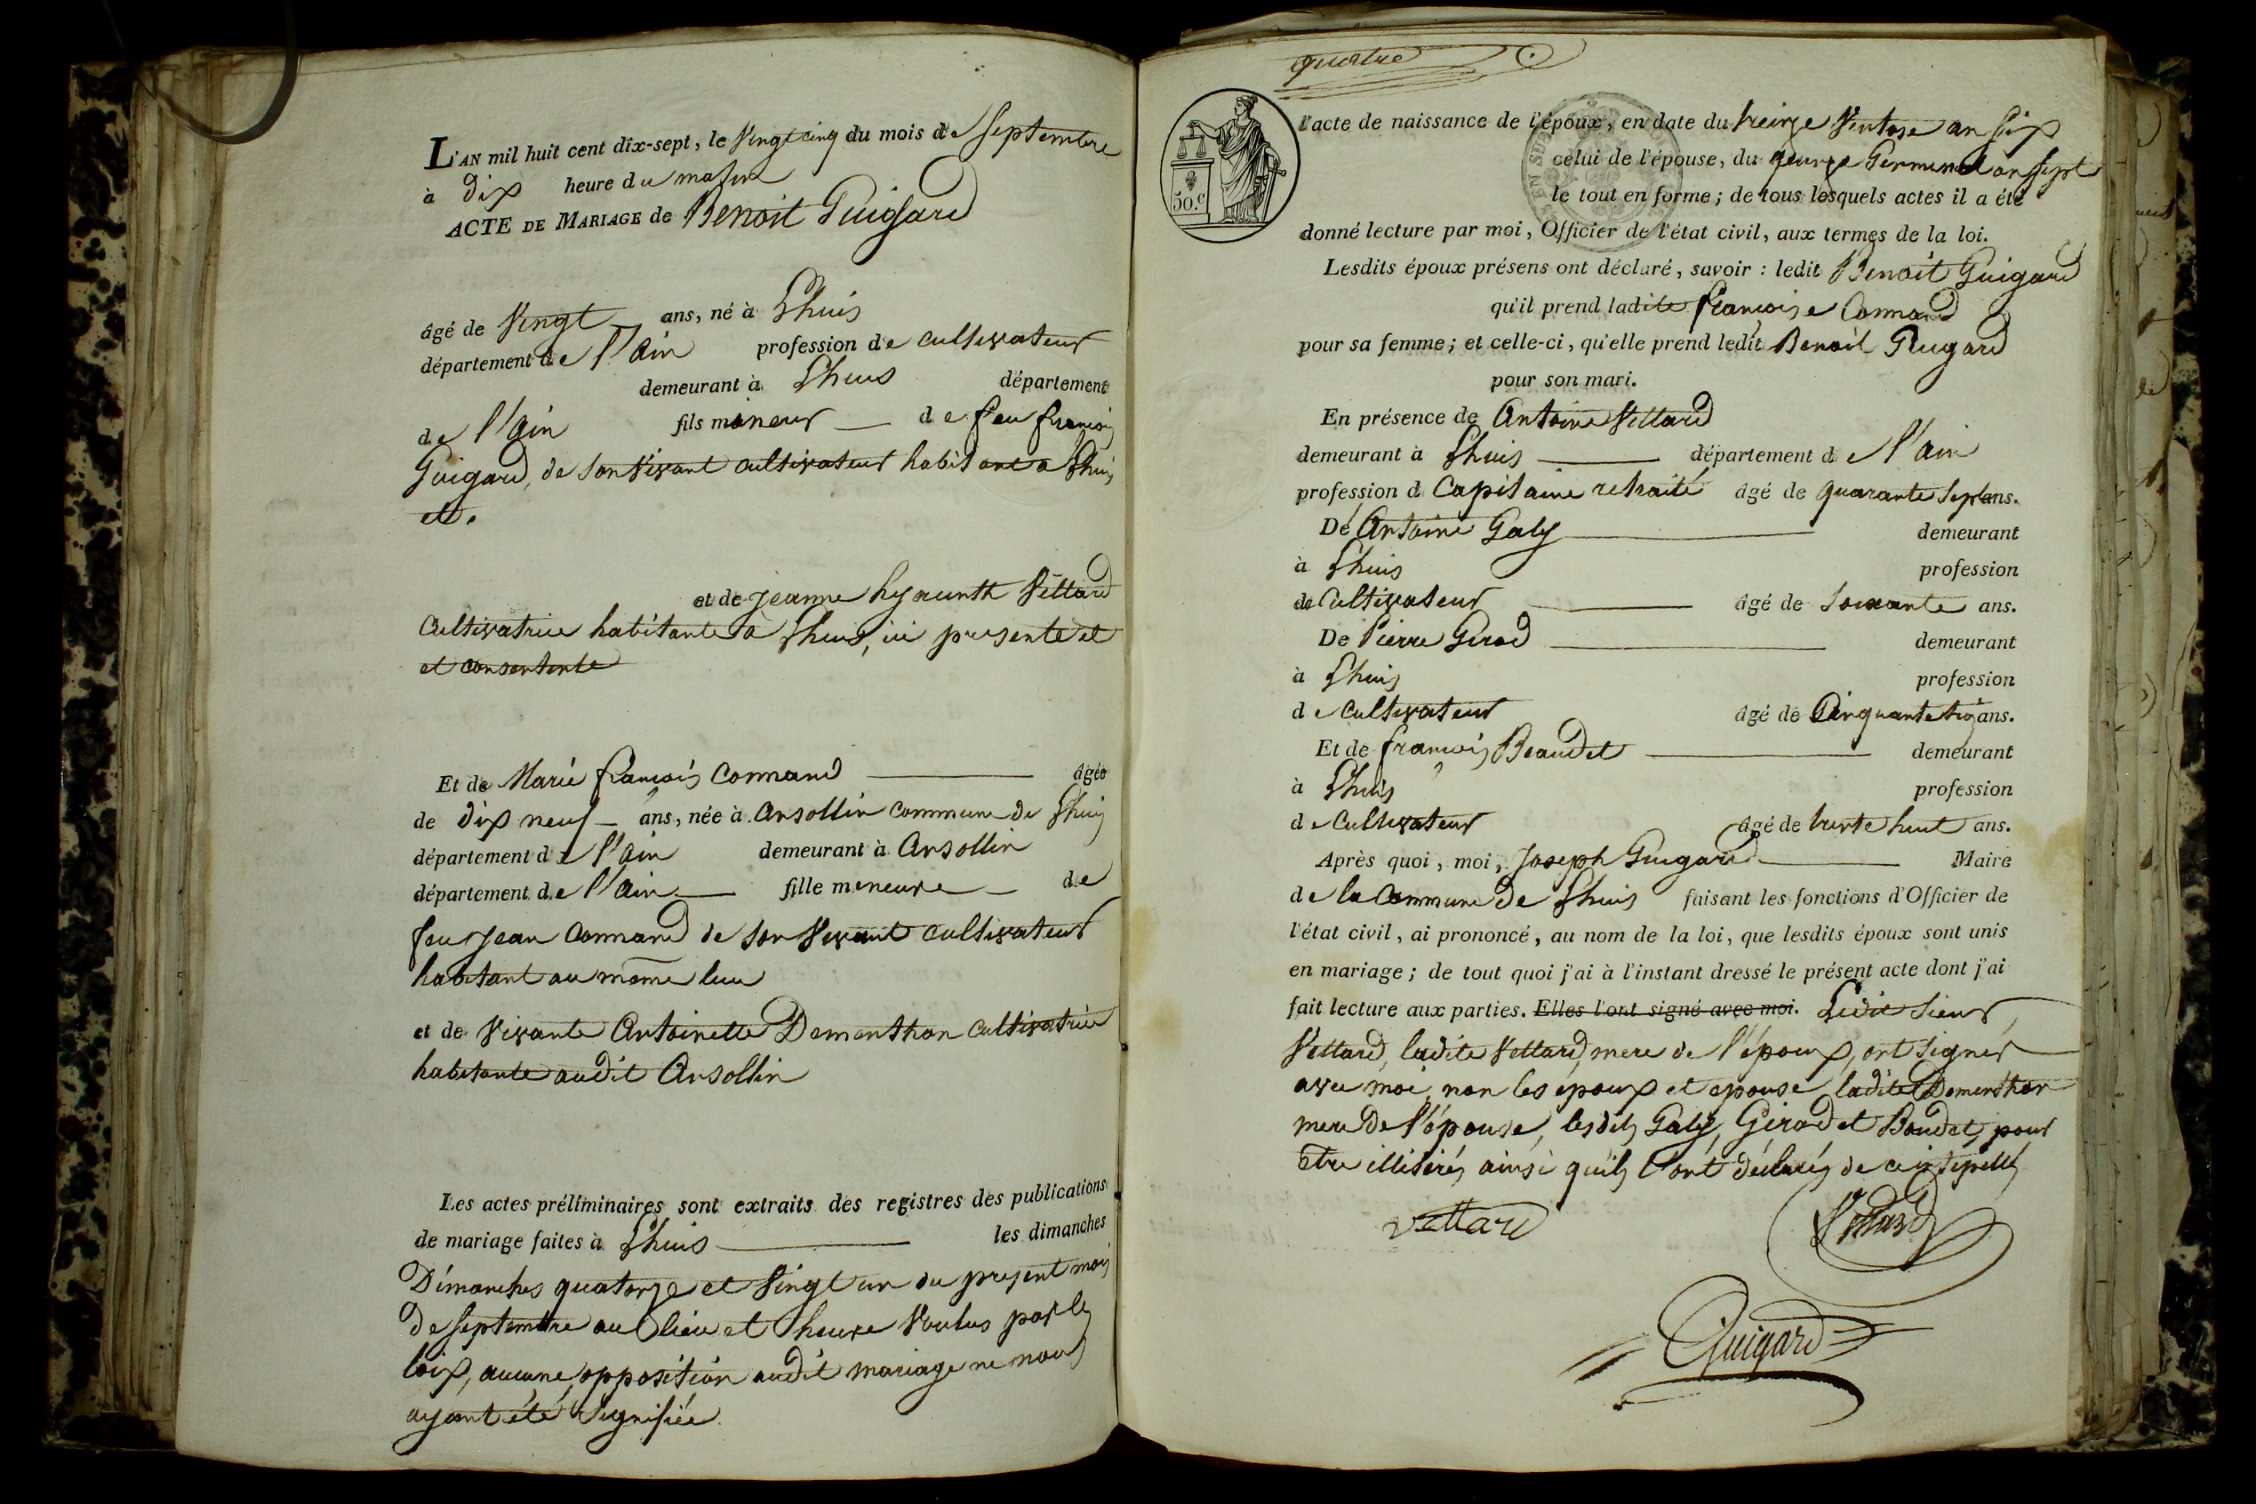 L'AN mil huit cent dix-sept, le Vingt cinq du mois de Septembre
à Dix heure du matin
ACTE DE MARIAGE de Benoit Guigard
âgé de Vingt ans, né à Lhuis
département de l'ain profession de cultivateur
demeurant à Lhuis département
de l'ain fils mineur de feu françois
Guigard, de Son Vivant cultivateur habitant a Lhuis
et.
et de jeanne hyacinth Vettard
Cultivatrice habitante a Lhuis, ici presente et
et consentente
Et de Marie françois Connand âgée
de dix neuf ans, née à Ansollin Commune de Lhuis
département de l'ain demeurant à Ansollin
département de l'ain fille meneure de
feu jean Connand de Son Vivant cultivateur
habitant au même lieu
et de Vivante Antoinette Demonthon cultivatrice
habitante audit Ansollin
Les actes préliminaires sont extraits des registres des publications
de mariage faites à Lhuis les dimanches
Dimanches quatorze et Vingt un du present mois
de Septembre au lieu et heure Voulus par les
loix, aucune opposition audit mariage ne nous
ayant été Signifiée
quatre
50.c
l'acte de naissance de l'époux, en date du treize Ventose an Six
celui de l'épouse, du Germinal an Sept
le tout en forme; de tous lesquels actes il a été
donné lecture par moi, Officier de l'état civil, aux termes de la loi.
Lesdits époux présens ont déclaré, savoir : ledit Benoit Guigard
qu'il prend ladite françoise Connand
pour sa femme; et celle-ci, qu'elle prend ledit Benoit Guigard
pour son mari.
En présence de Antoine Vettard
demeurant à Lhuis département de l'ain
profession d Capitaine retraité âgé de quarante Sept ans.
De Antoine Galy demeurant
à Lhuis profession
de Cultivateur âgé de Soixante ans.
De Pierre Girod demeurant
à Lhuis profession
de Cultivateur âgé de Cinquante trois ans.
Et de françois Beaudet demeurant
à Lhuis profession
de Cultivateur âgé de trente huit ans.
Après quoi, moi, Joseph Guigard Maire
de la Commune de Lhuis faisant les fonctions d'Officier de
l'état civil, ai prononcé, au nom de la loi, que lesdits époux sont unis
en mariage; de tout quoi j'ai à l'instant dressé le présent acte dont j'ai
fait lecture aux parties. Elles l'ont signé avec moi. Ledit Sieur
Vettard, ladite Vettard, mere de l'époux, ont Signés
avec moi, non les époux et epouse, ladite Demonthon
mere de l'épouse, lesdits Galy, Girod et Baudet, pour
etre illiterés ainsi quils l'ont déclarés de ce interpellés
Vettard Vettard
Guigard